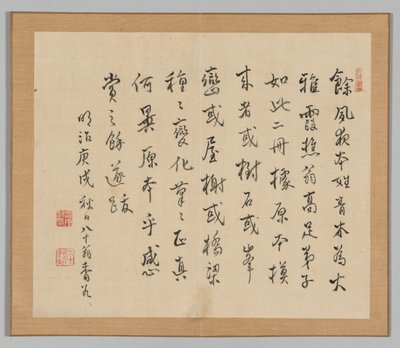 餘夙夜本姓青木為大
雅霞樵翁高足弟子
如此二冊據原本摸
来者或樹石或峯
巒或屋榭或橋梁
種々變化筆々正真
何異原本乎感
賞之餘遂跋
明治庚戌秋日八十翁香谷